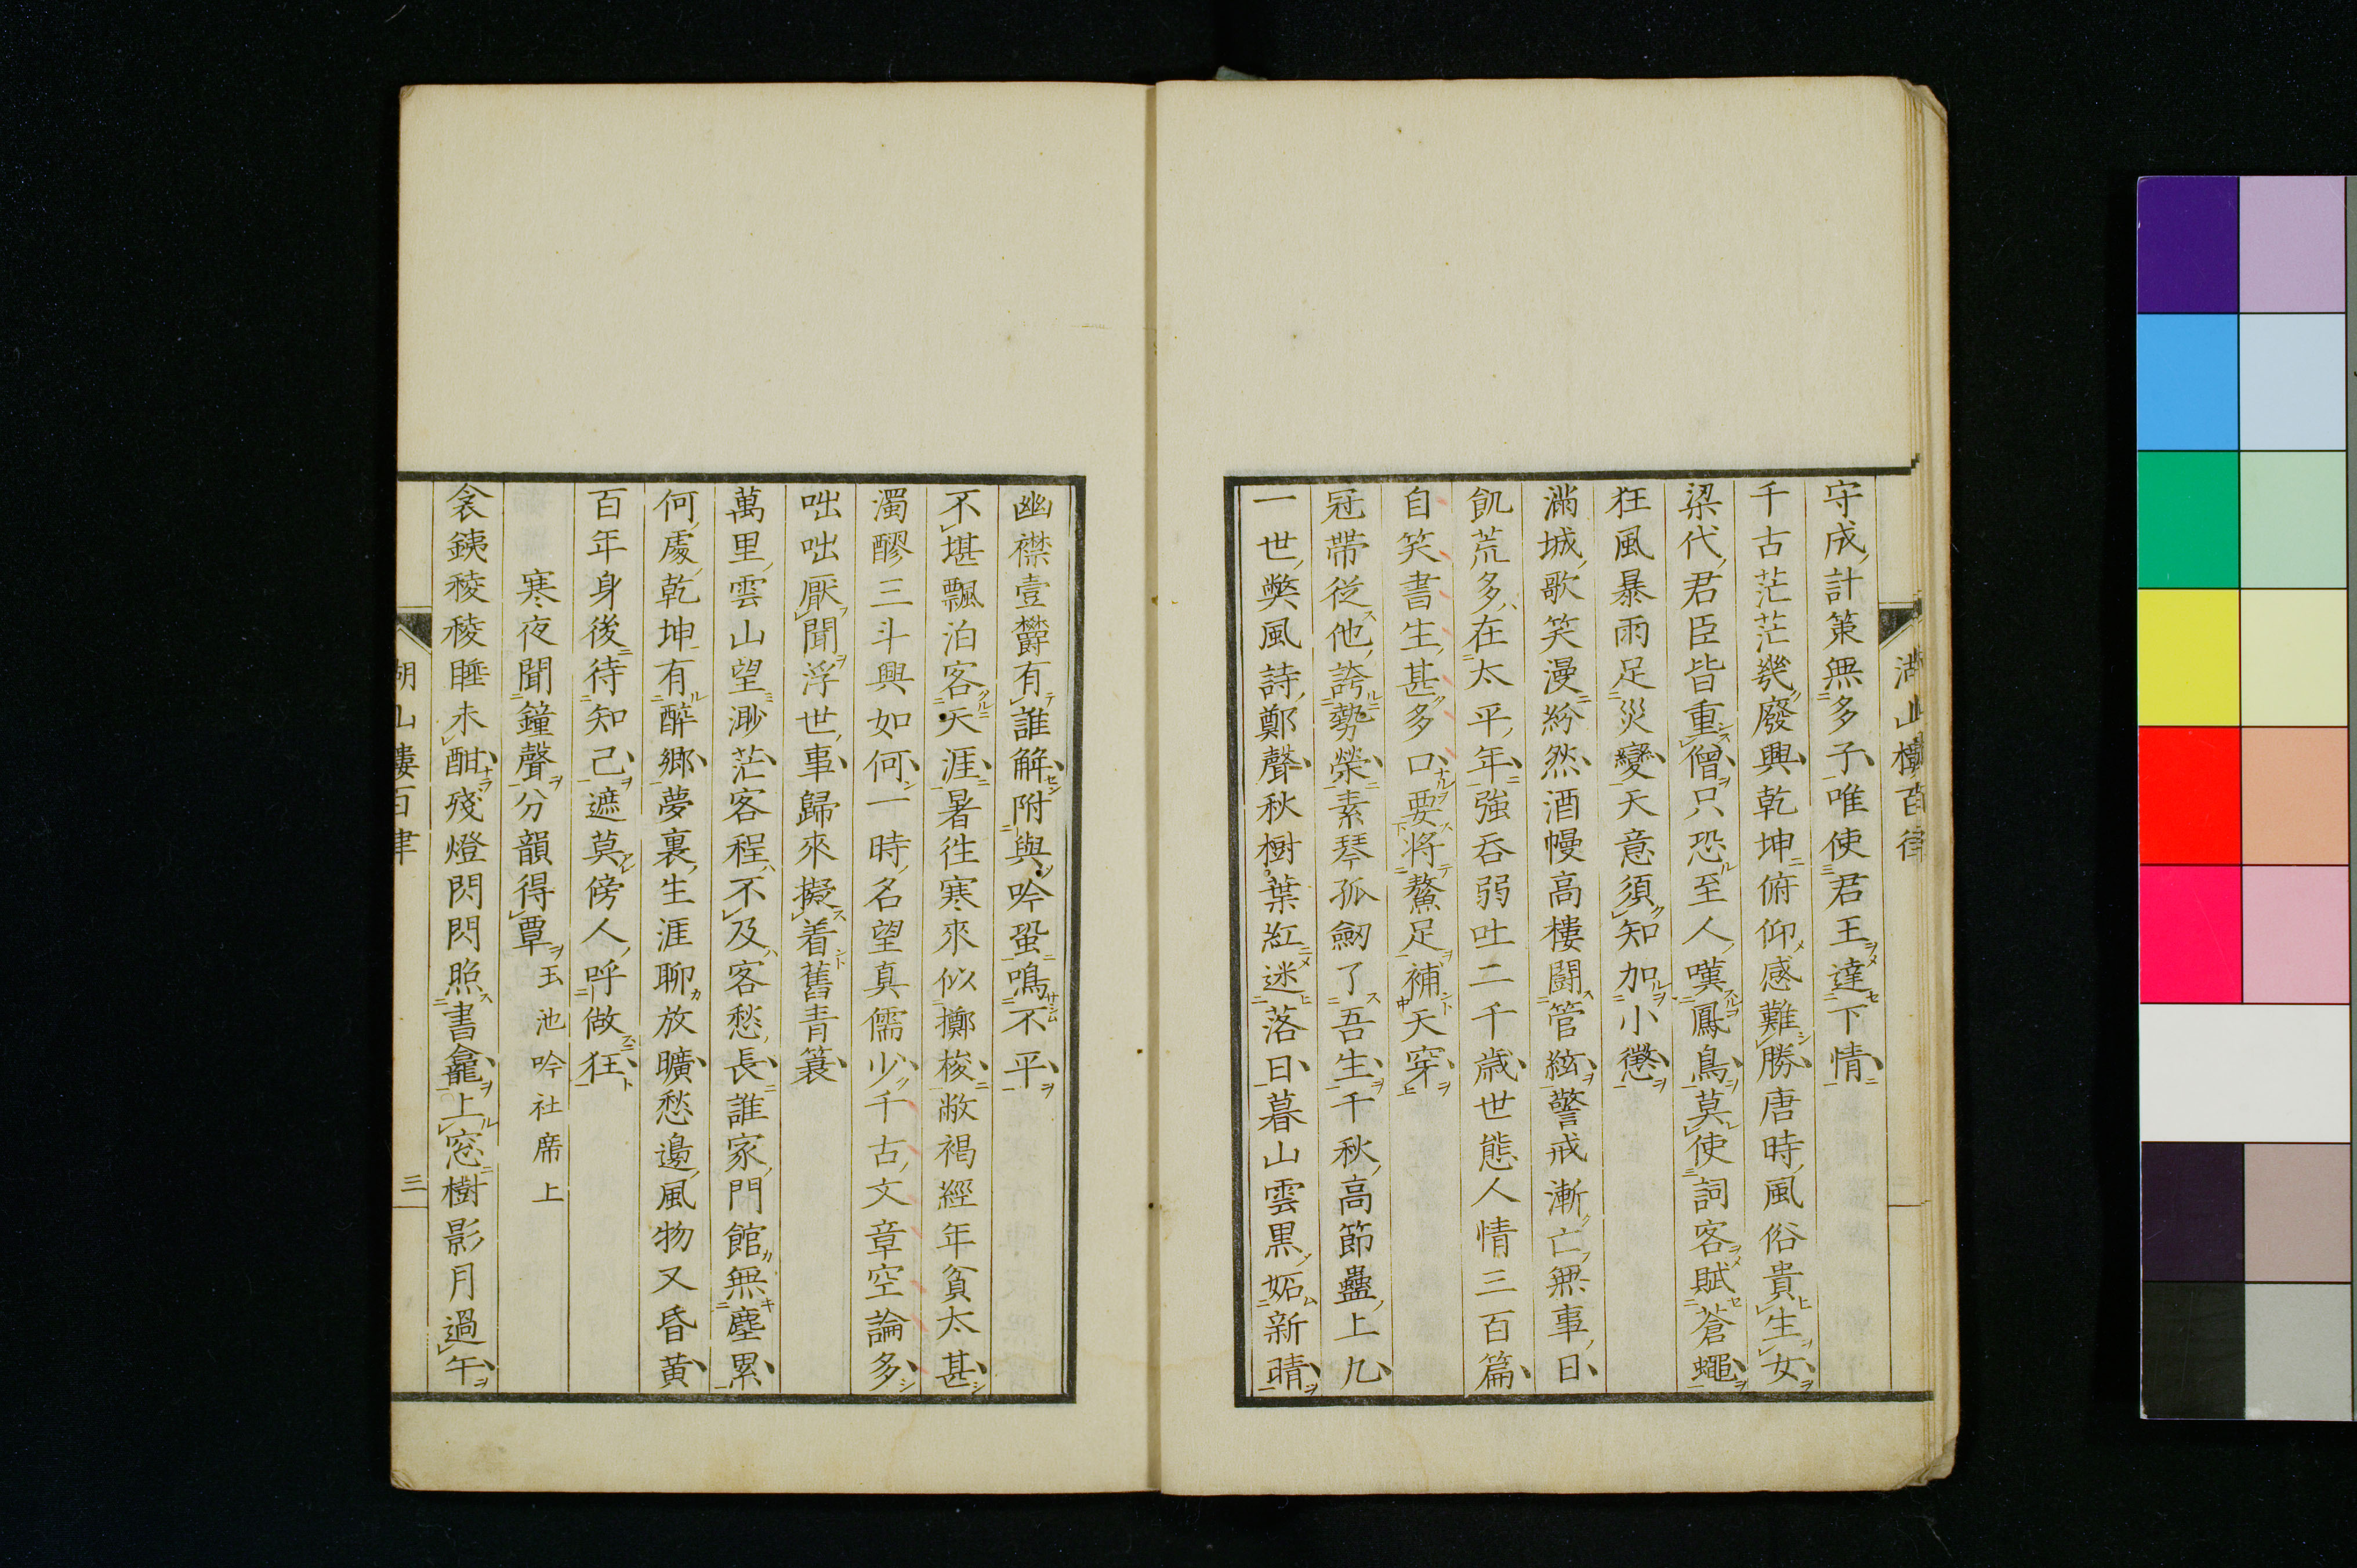 湖山樓百律
守成計策無多子唯使君王達下情
千古茫茫幾廢興乾坤俯仰感難勝唐時風俗貴生女
梁代君臣皆重僧只恐至人嘆鳳鳥莫使詞客賦蒼蠅
狂風暴雨足災變天意須知加小懲
滿城歌笑漫紛然酒幔高樓鬪管絃警戒漸亡無事日
飢荒多在太平年強吞弱吐二千歲世態人情三百篇
自笑書生甚多口要將鰲足補天穿
冠帶從他誇勢榮素琴孤劒了吾生千秋高節蠱上九
一世弊風詩鄭聲秋樹葉紅迷落日暮山雲黒妬新晴
幽襟壹欝有誰解附與吟蛩鳴不平
不堪飄泊客天涯暑徃寒來似擲梭敝褐經年貧太甚
濁醪三斗興如何一時名望真儒少千古文章空論多
咄咄厭聞浮世事歸來擬着舊青簑
萬里雲山望渺茫客程不及客愁長誰家門館無塵累
何處乾坤有醉鄉夢裏生涯聊放曠愁邊風物又昏黄
百年身後待知己遮莫傍人呼做狂
寒夜聞鐘聲分韻得覃玉池吟社席上
衾銕稜稜睡未酣殘燈閃閃照書龕上窓樹影月過午
湖山樓百律 三